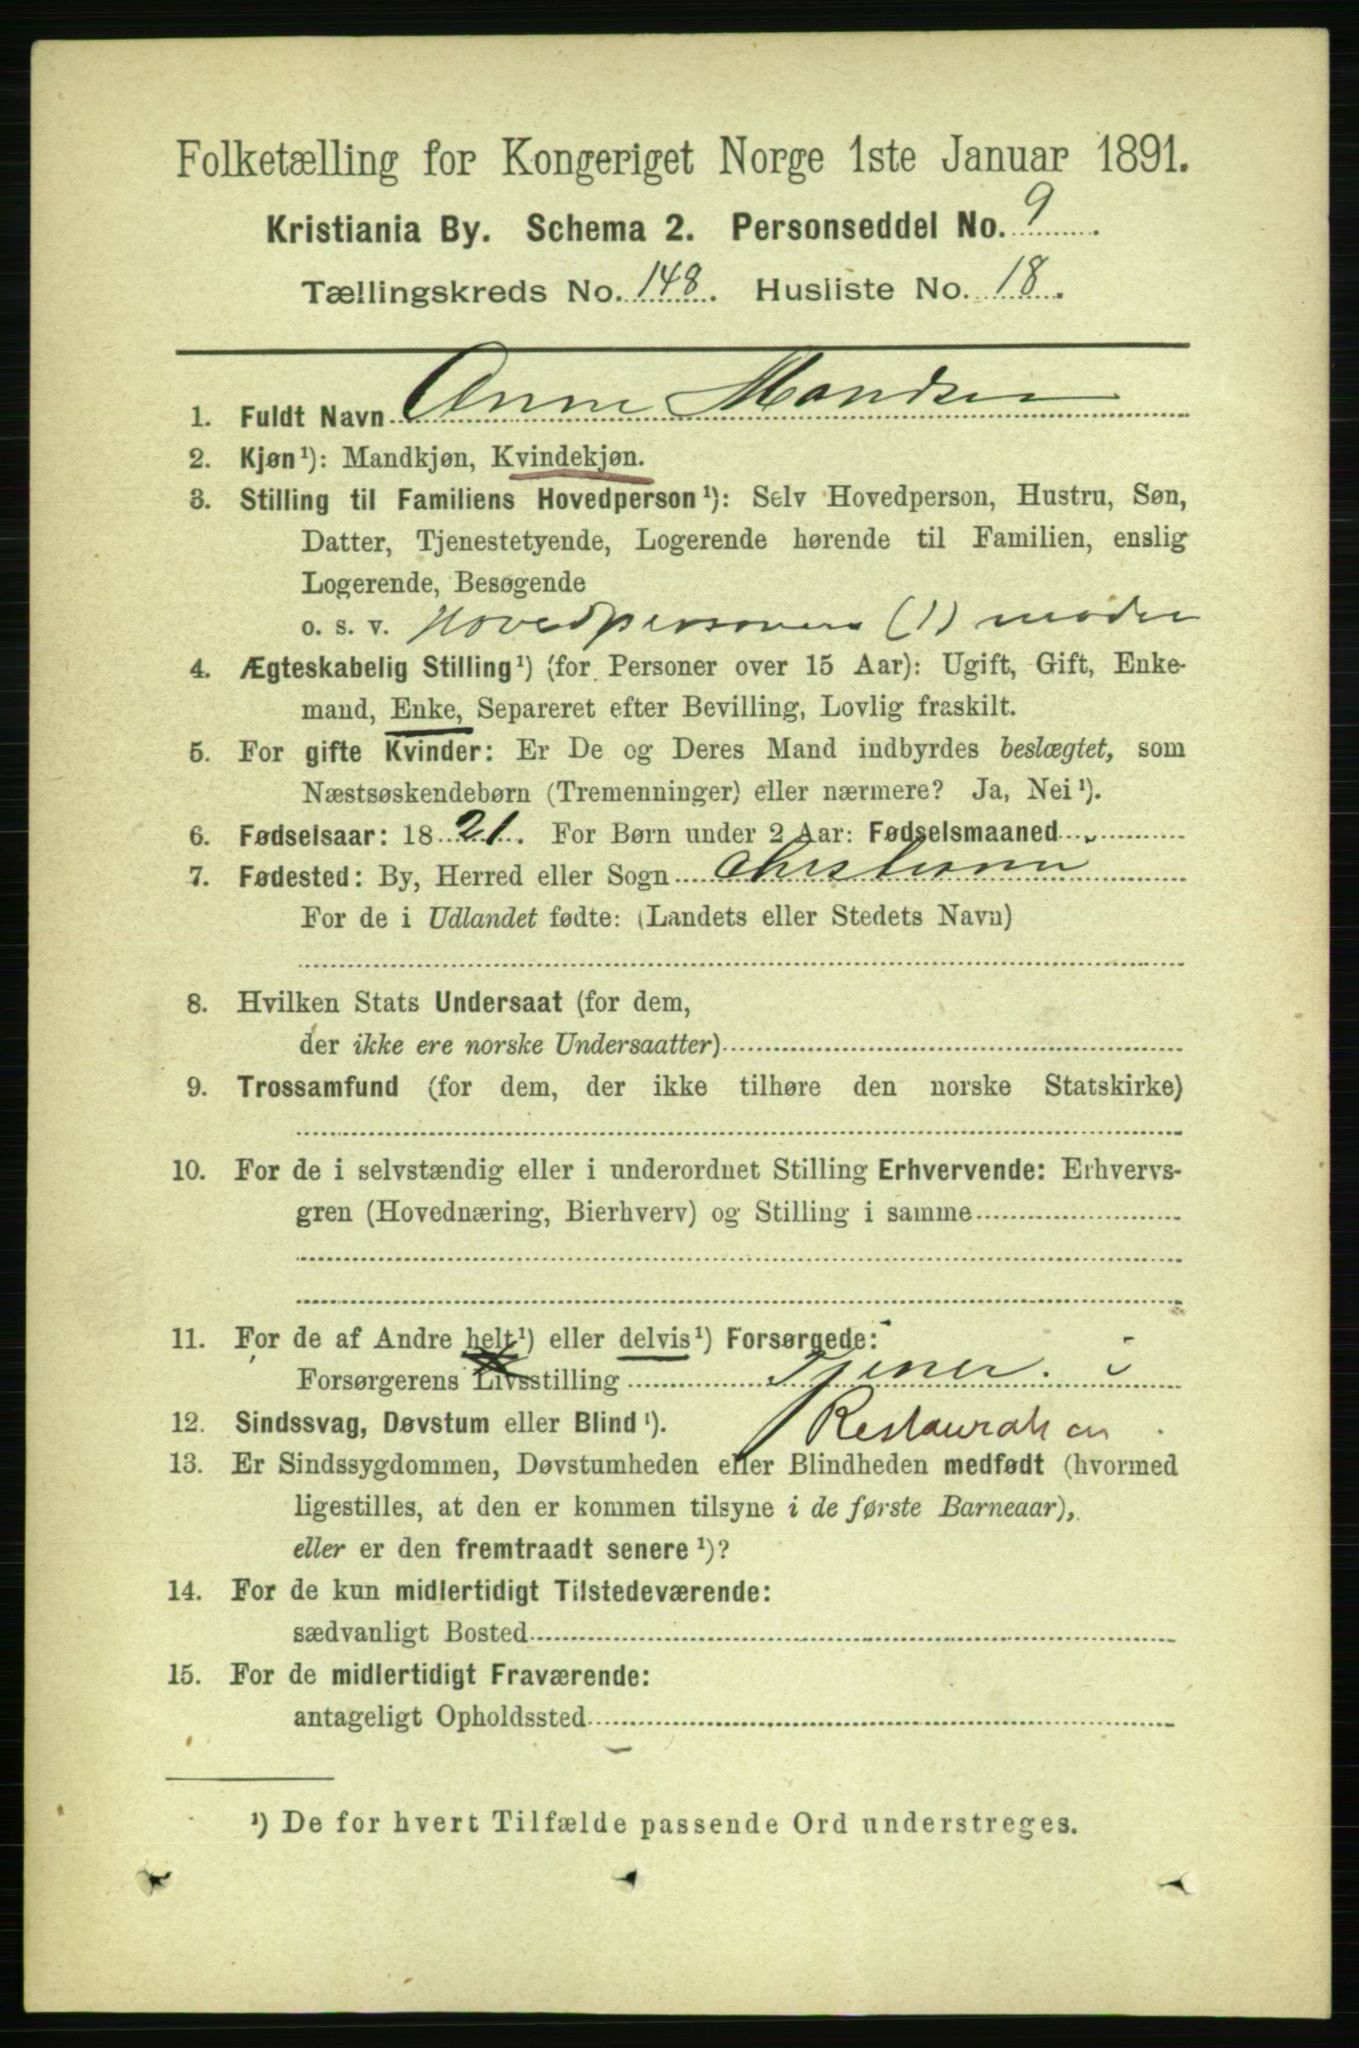 Folketælling for Kongeriget Norge 1ste Januar 1891.
Kristiania By. Schema 2. Personseddel No. 9.
Tællingskreds No. 148. Husliste No. 18.
1. Fuldt Navn Anne Mandsen
2. Kjøn¹): Mandkjøn, Kvindekjøn.
3. Stilling til Familiens Hovedperson¹): Selv Hovedperson, Hustru, Søn,
Datter, Tjenestetyende, Logerende hørende til Familien, enslig
Logerende, Besøgende
o. s. v. Hovedpersonens (1) moder
4. Ægteskabelig Stilling¹) (for Personer over 15 Aar): Ugift, Gift, Enke-
mand, Enke, Separeret efter Bevilling, Lovlig fraskilt.
5. For gifte Kvinder: Er De og Deres Mand indbyrdes beslægtet, som
Næstsøskendebørn (Tremenninger) eller nærmere? Ja, Nei¹).
6. Fødselsaar: 1821. For Børn under 2 Aar: Fødselsmaaned
7. Fødested: By, Herred eller Sogn Christiania
For de i Udlandet fødte: (Landets eller Stedets Navn)
8. Hvilken Stats Undersaat (for dem,
der ikke ere norske Undersaatter)
9. Trossamfund (for dem, der ikke tilhøre den norske Statskirke)
10. For de i selvstændig eller i underordnet Stilling Erhvervende: Erhvervs-
gren (Hovednæring, Bierhverv) og Stilling i samme
11. For de af Andre helt¹) eller delvis¹) Forsørgede:
Forsørgerens Livsstilling Tjener i
12. Sindssvag, Døvstum eller Blind¹). Restauration
13. Er Sindssygdommen, Døvstumheden eller Blindheden medfødt (hvormed
ligestilles, at den er kommen tilsyne i de første Barneaar),
eller er den fremtraadt senere¹)?
14. For de kun midlertidigt Tilstedeværende:
sædvanligt Bosted
15. For de midlertidigt Fraværende:
antageligt Opholdssted
¹) De for hvert Tilfælde passende Ord understreges.